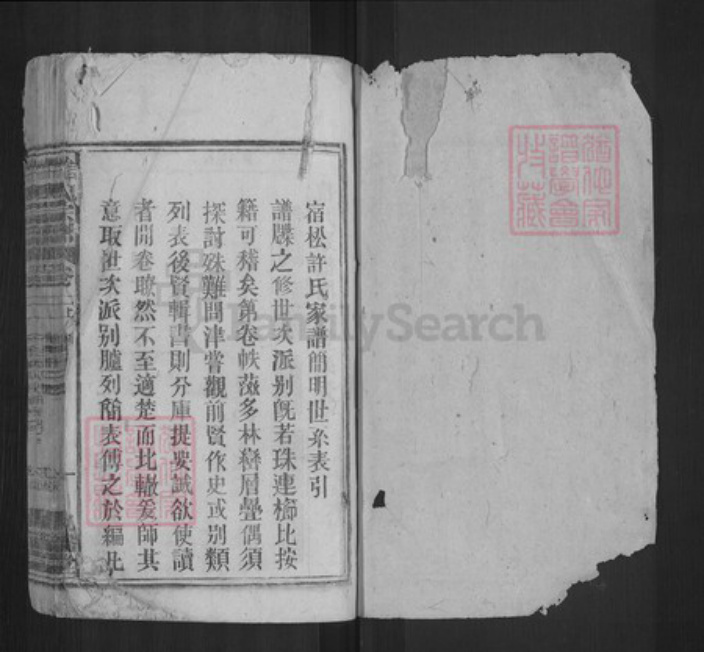 宿松許氏家譜簡明世系表引
譜牒之修世次派别既若珠連櫛比按
籍可稽矣第卷帙蕃多林巒層疊偶須
探討殊難問津嘗觀前賢作史或别類
列表後賢輯書則分庫提要誠欲使讀
者開卷瞭然不至適楚而北轍爰師其
意取世次派别臚列簡表傅之於編北
FamilySearch